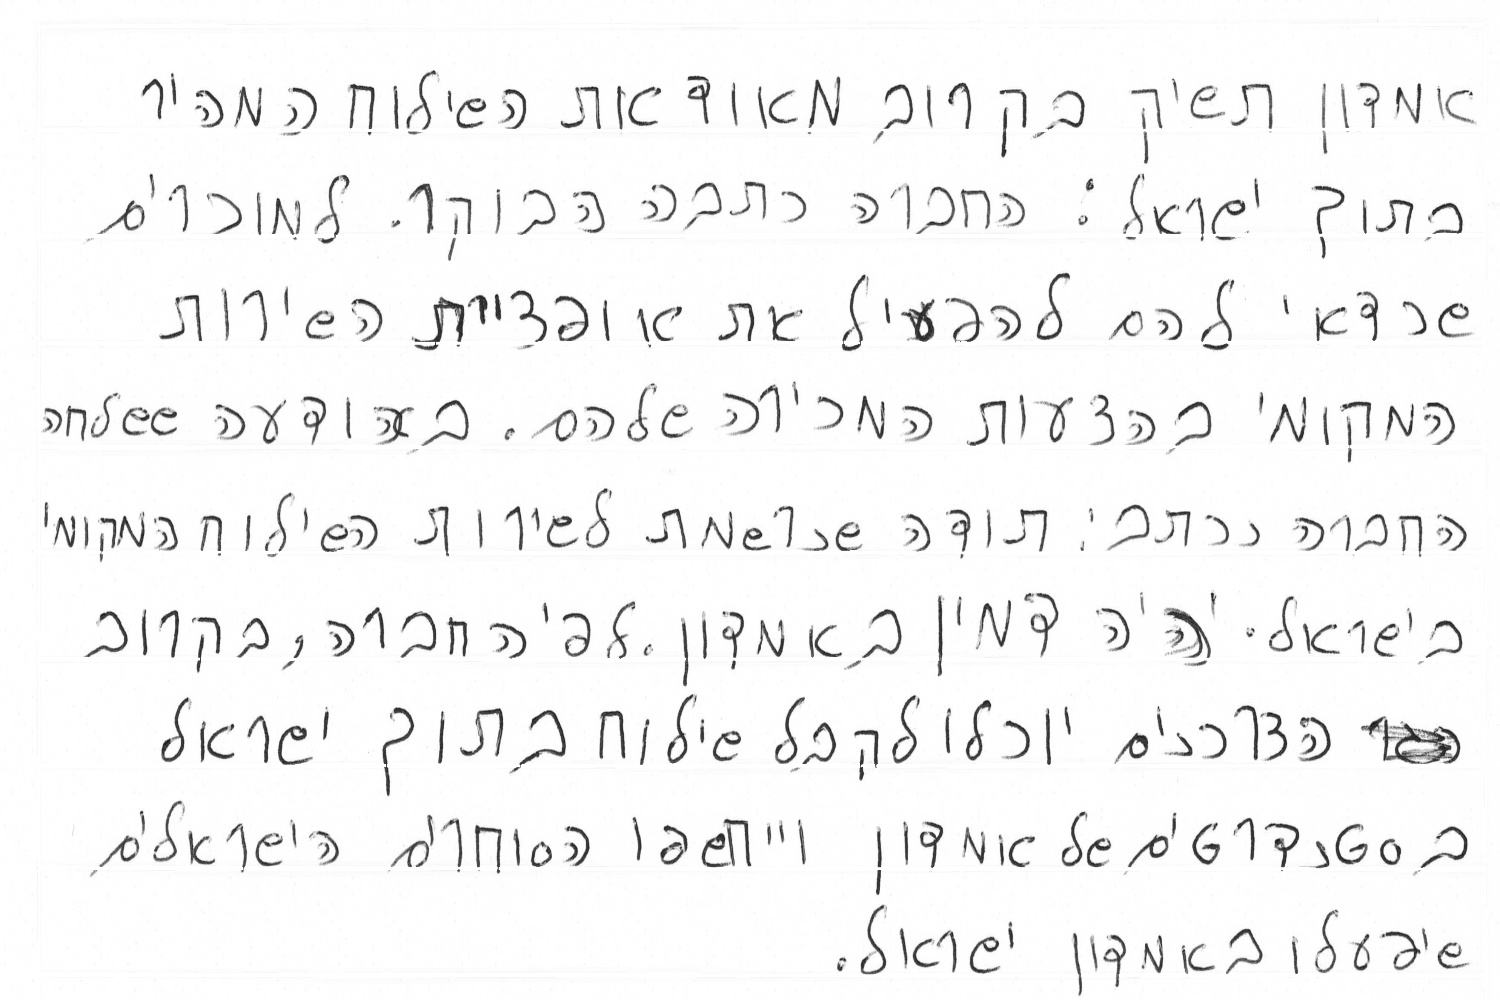 אמדון תשיק בקרוב מאוד את השילוח המהיר
בתוך ישראל: החברה כתבה הבוקר. למוכרים
שכדאי להם להפעיל את אופציית השירות
המקומי בהצעות המכירה שלהם. בהודעה ששלחה
החברה נכתב: תודה שנרשמת לשירות השילוח המקומי
בישראל. יהיה זמין באמדון. לפי החברה, בקרוב
הצרכנים יוכלו לקבל שילוח בתוך ישראל
בסטנדרטים של אמדון וייחשפו הסוחרים הישראלים
שיפעלו באמדון ישראל.